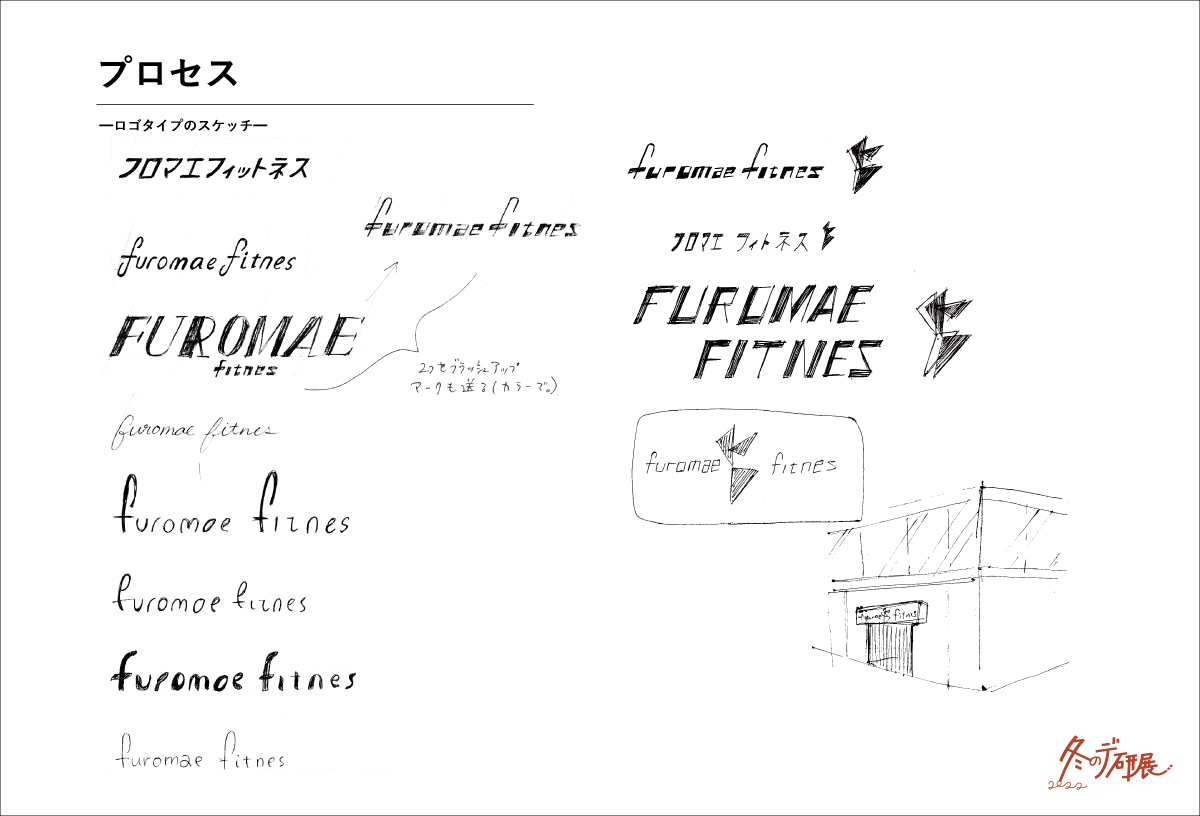 プロセス
―ロゴタイプのスケッチ―
フロマエフィットネス
furomae fitnes
furomae fitnes
FUROMAE
fitnes
2つをブラッシュアップ
マークも送る(カラーで。)
furomae fitnes
furomae fitnes
furomae fitnes
furomae fitnes
furomae fitnes
furomae fitnes
フロマエ フィトネス
FUROMAE
FITNES
furomae fitnes
furomae fitnes
冬のデ研展
2022